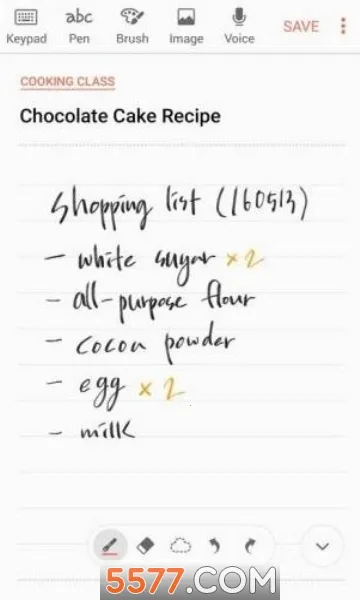 Keypad Pen Brush Image Voice SAVE
COOKING CLASS
Chocolate Cake Recipe
Shopping list (160513)
- white sugar x2
- all-purpose flour
- cocoa powder
- egg x2
- milk
5577.COM